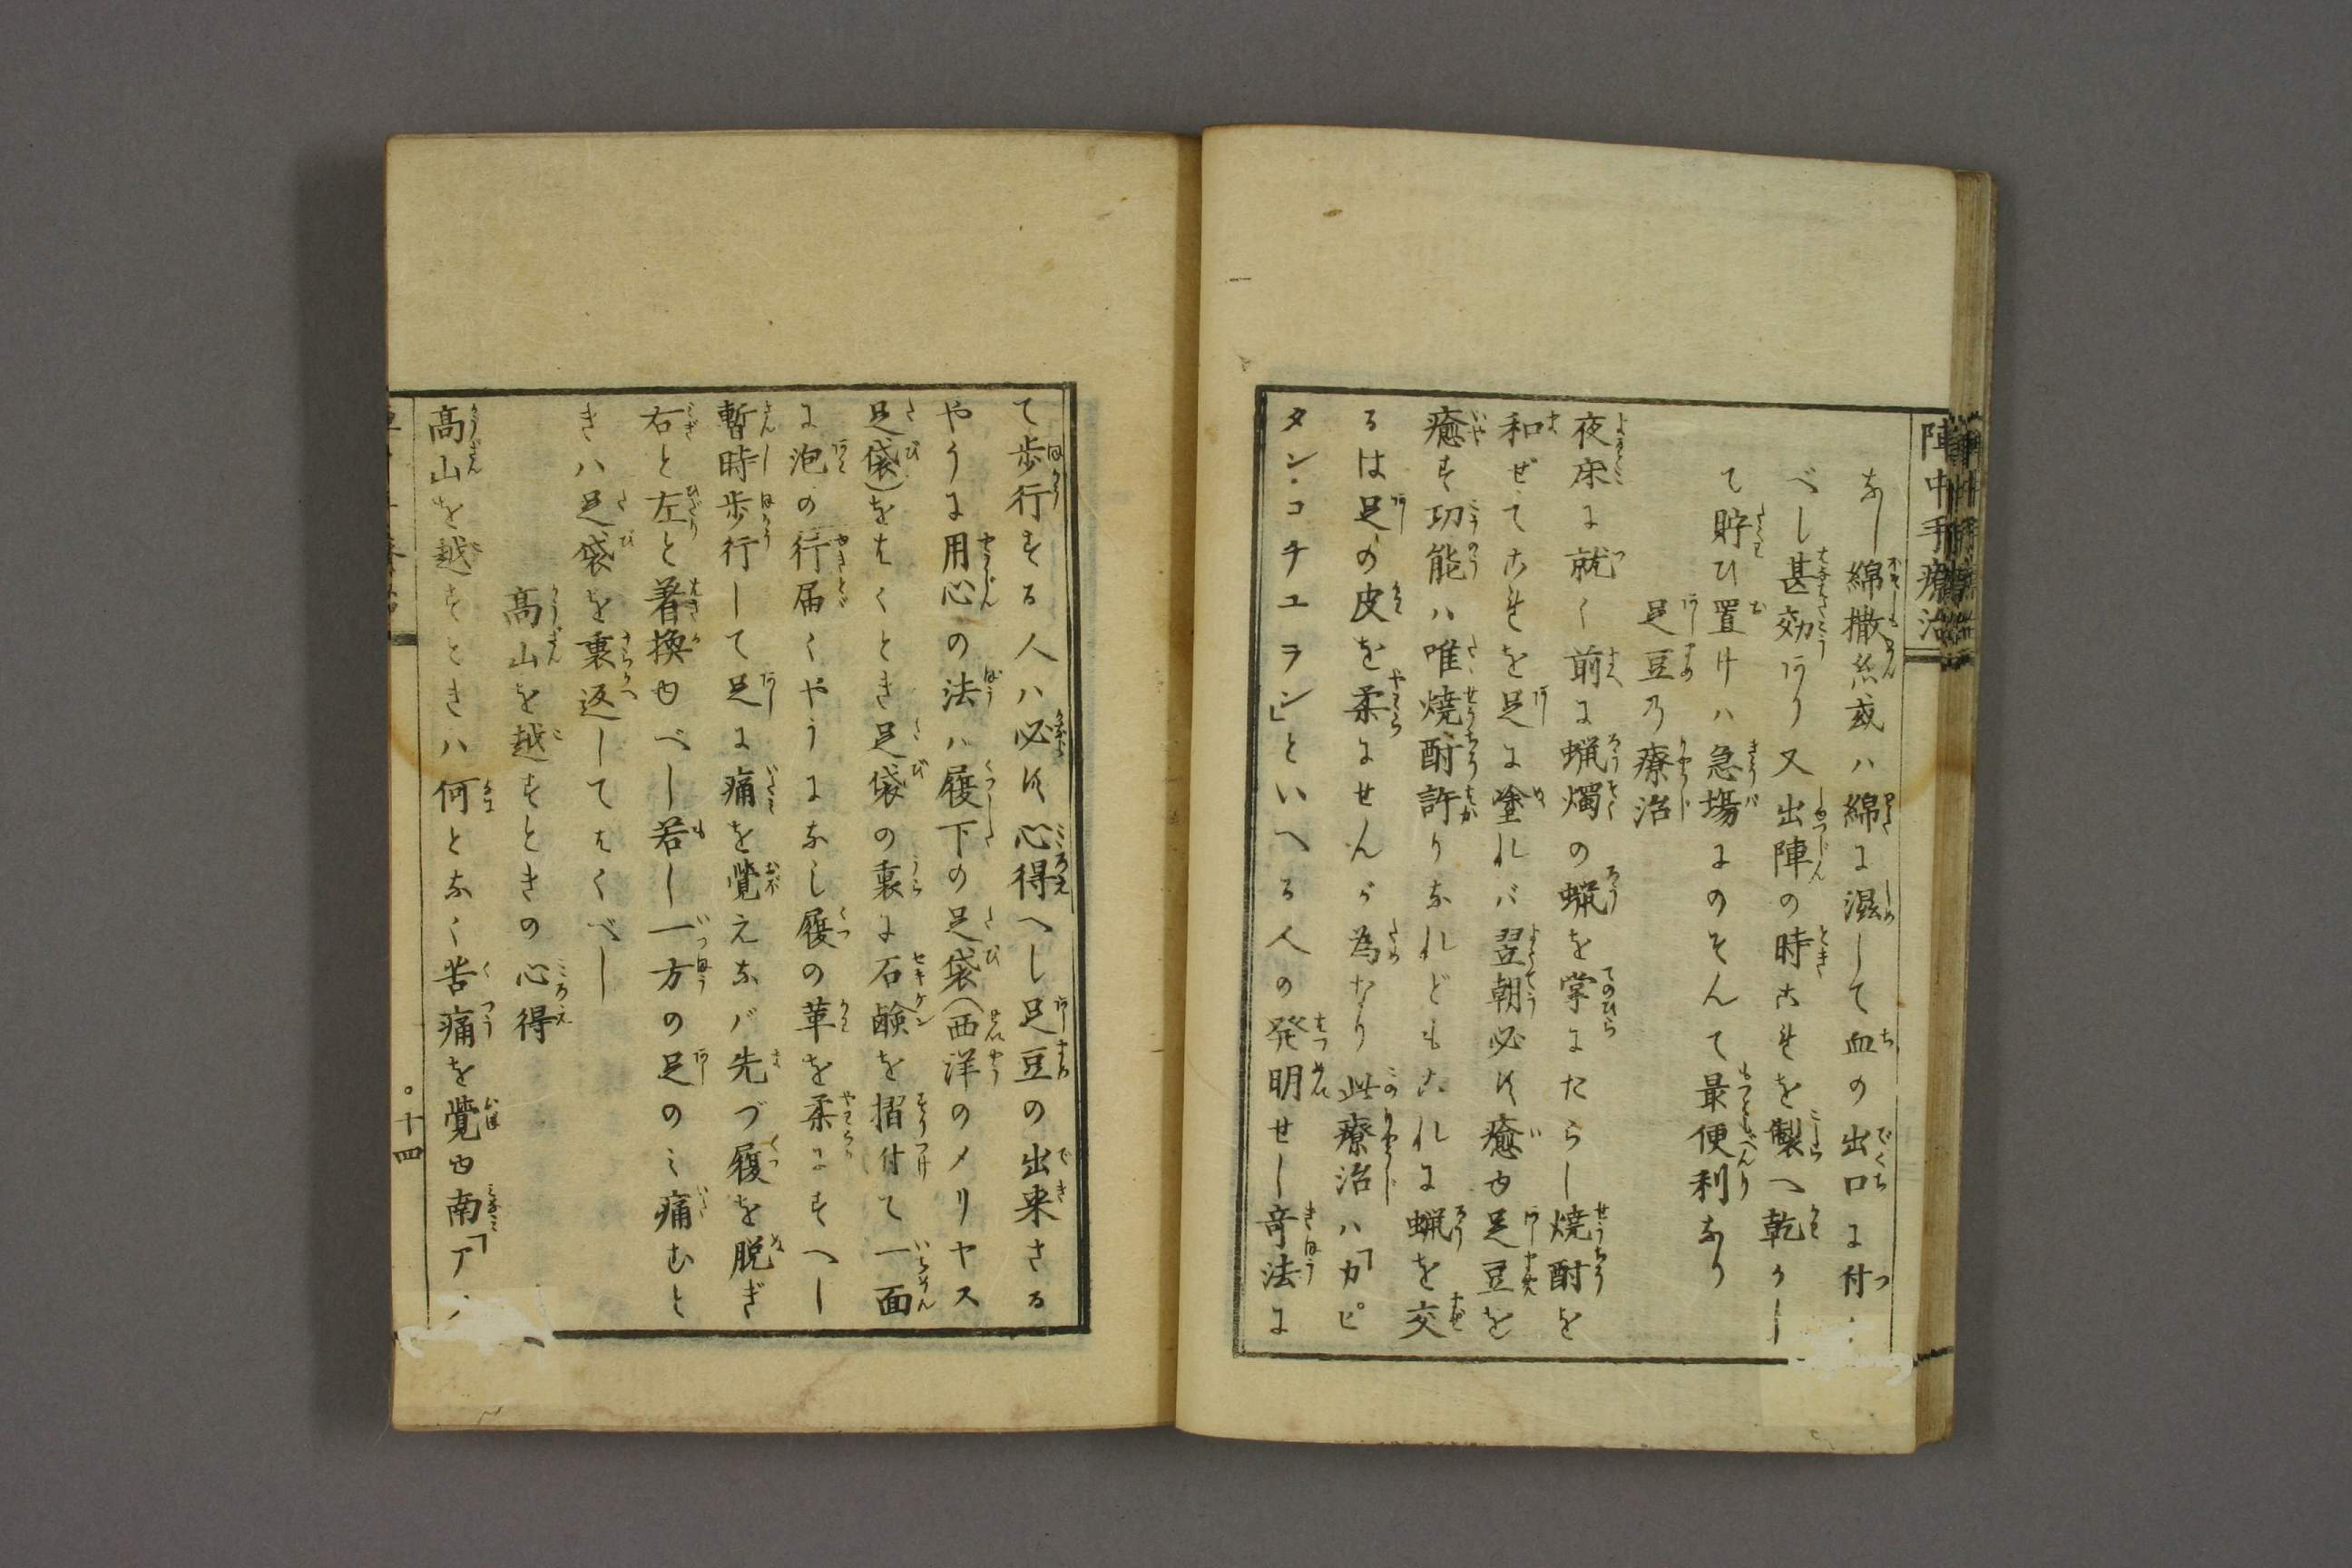 陣中手療治
なし綿撒糸或ハ綿に濕して血の出口に付
べし甚効あり又出陣の時これを製へ乾かし
て貯ひ置けハ急場にのそんて最便利なり
足豆乃療治
夜床に就く前に蝋燭の蝋を掌にたらし焼酎を
和ぜてこれを足に塗れバ翌朝必ず癒ゆ足豆を
癒す功能ハ唯焼酎許りなれどもこれに蝋を交
るは足の皮を柔にせんが為なり此療治ハ「カピ
タン・コチユラン」といへる人の発明せし奇法に
て歩行する人ハ必ず心得へし足豆の出来さる
やうに用心の法ハ履下の足袋(西洋のメリヤス
足袋)をはくとき足袋の裏に石鹸を摺付て一面
に泡の行届くやうになし履の革を柔にすへし
暫時歩行して足に痛を覚えなバ先づ履を脱ぎ
右と左と着換ゆべし若し一方の足のミ痛むと
きハ足袋を裏返してはくべし
高山を越すときの心得
高山を越すときハ何となく苦痛を覚ゆ南「ア
十四